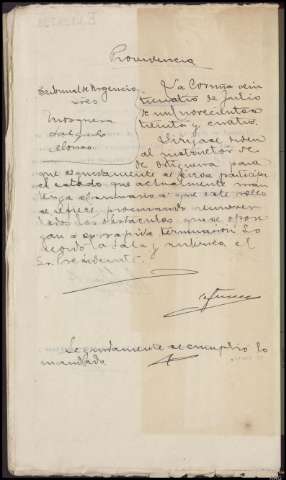 Providencia
Tribunal de Urgencia
La Coruña vein
ticuatro de Julio
de mil novecientos
treinta y cuatro.
Salgado
Alonso
Diríjase orden
al instructor de
Ortigueira para
que seguidamente
el estado que actualmente man
tenga el sumario a que este rollo
se refiere, procurando remover
los obstáculos que se opon
gan a su rápida terminación. Lo
acordó la Sala y rubrica el
Sr. Presidente.
Seguidamente se cumplió lo
mandado